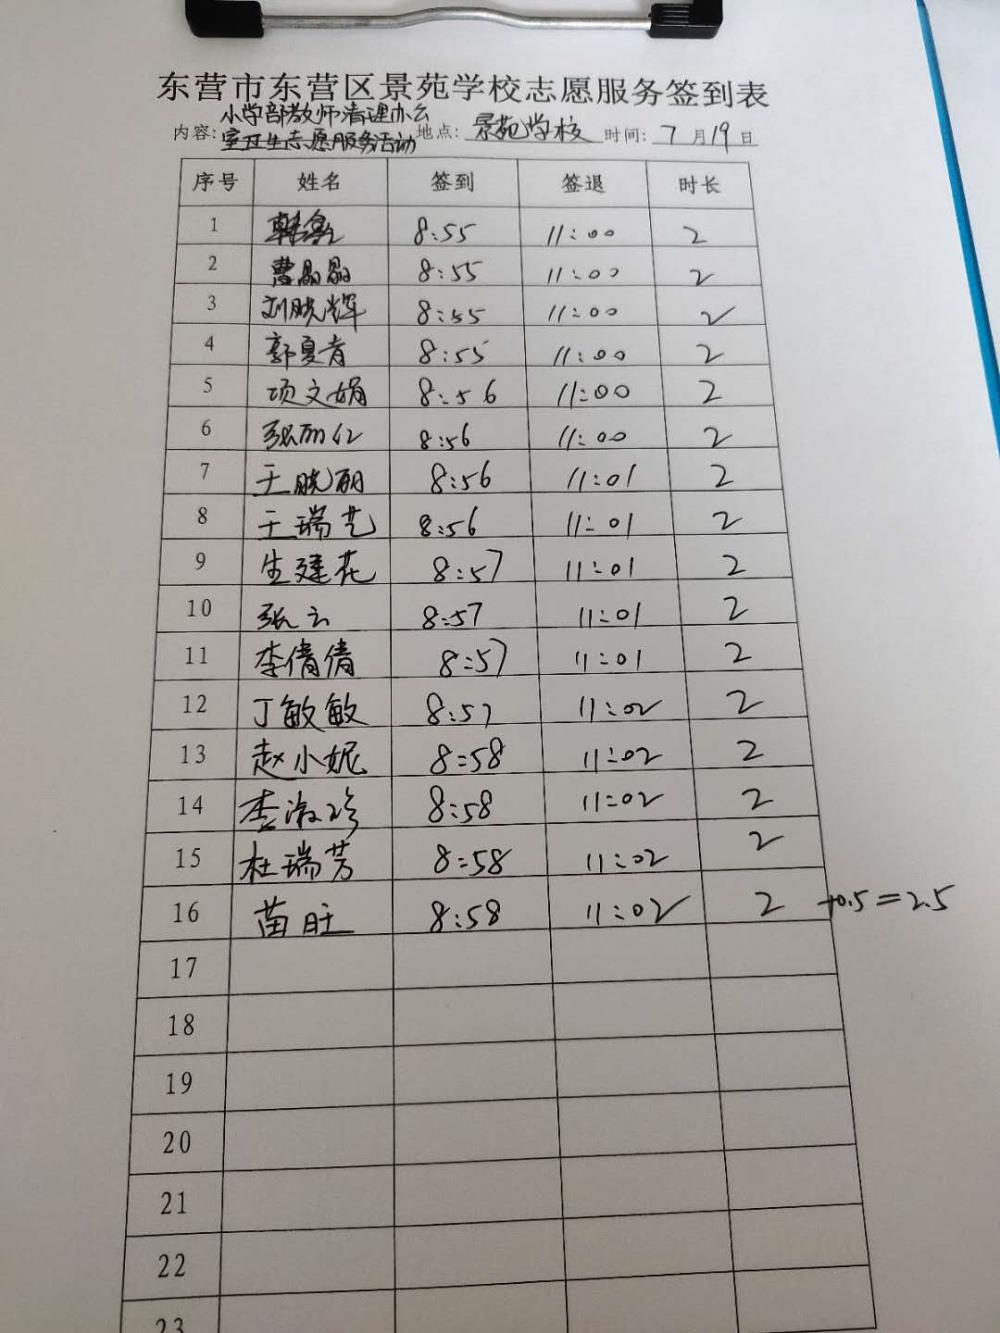 东营市东营区景苑学校志愿服务签到表
内容: 小学部教师清理办公室卫生志愿服务活动 地点: 景苑学校 时间: 7月19日
序号 姓名 签到 签退 时长
1 8:55 11:00 2
2 曹晶晶 8:55 11:00 2
3 刘晓辉 8:55 11:00 2
4 郭夏青 8:55 11:00 2
5 项文娟 8:56 11:00 2
6 张丽红 8:56 11:00 2
7 王晓丽 8:56 11:01 2
8 王瑞艺 8:56 11:01 2
9 生建花 8:57 11:01 2
10 张云 8:57 11:01 2
11 李倩倩 8:57 11:01 2
12 丁敏敏 8:57 11:02 2
13 赵小妮 8:58 11:02 2
14 李淑珍 8:58 11:02 2
15 杜瑞芳 8:58 11:02 2
16 苗旺 8:58 11:02 2 +0.5=2.5
17
18
19
20
21
22
23